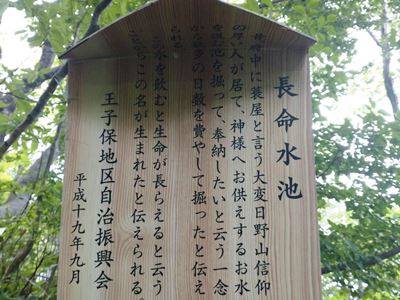 長命水池
昔府中に蓑屋と言う大変日野山信仰
の厚い人が居て、神様へお供えするお水
を汲む池を掘って、奉納したいと云う一念
から多くの日数を費やして掘ったと伝え
られる
この水を飲むと生命が長らえると云う
ことからこの名が生まれたと伝えられる。
王子保地区自治振興会
平成十九年九月